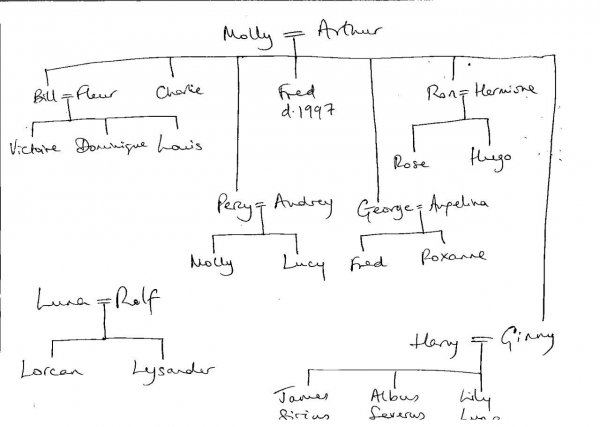 Molly = Arthur
Bill = Fleur Charlie Fred Ron = Hermione
d.1997
Victoire Dominique Louis
Rose Hugo
Percy = Audrey George = Angelina
Molly Lucy Fred Roxanne
Luna = Rolf
Harry = Ginny
Lorcan Lysander
James Albus Lily
Sirius Severus Luna